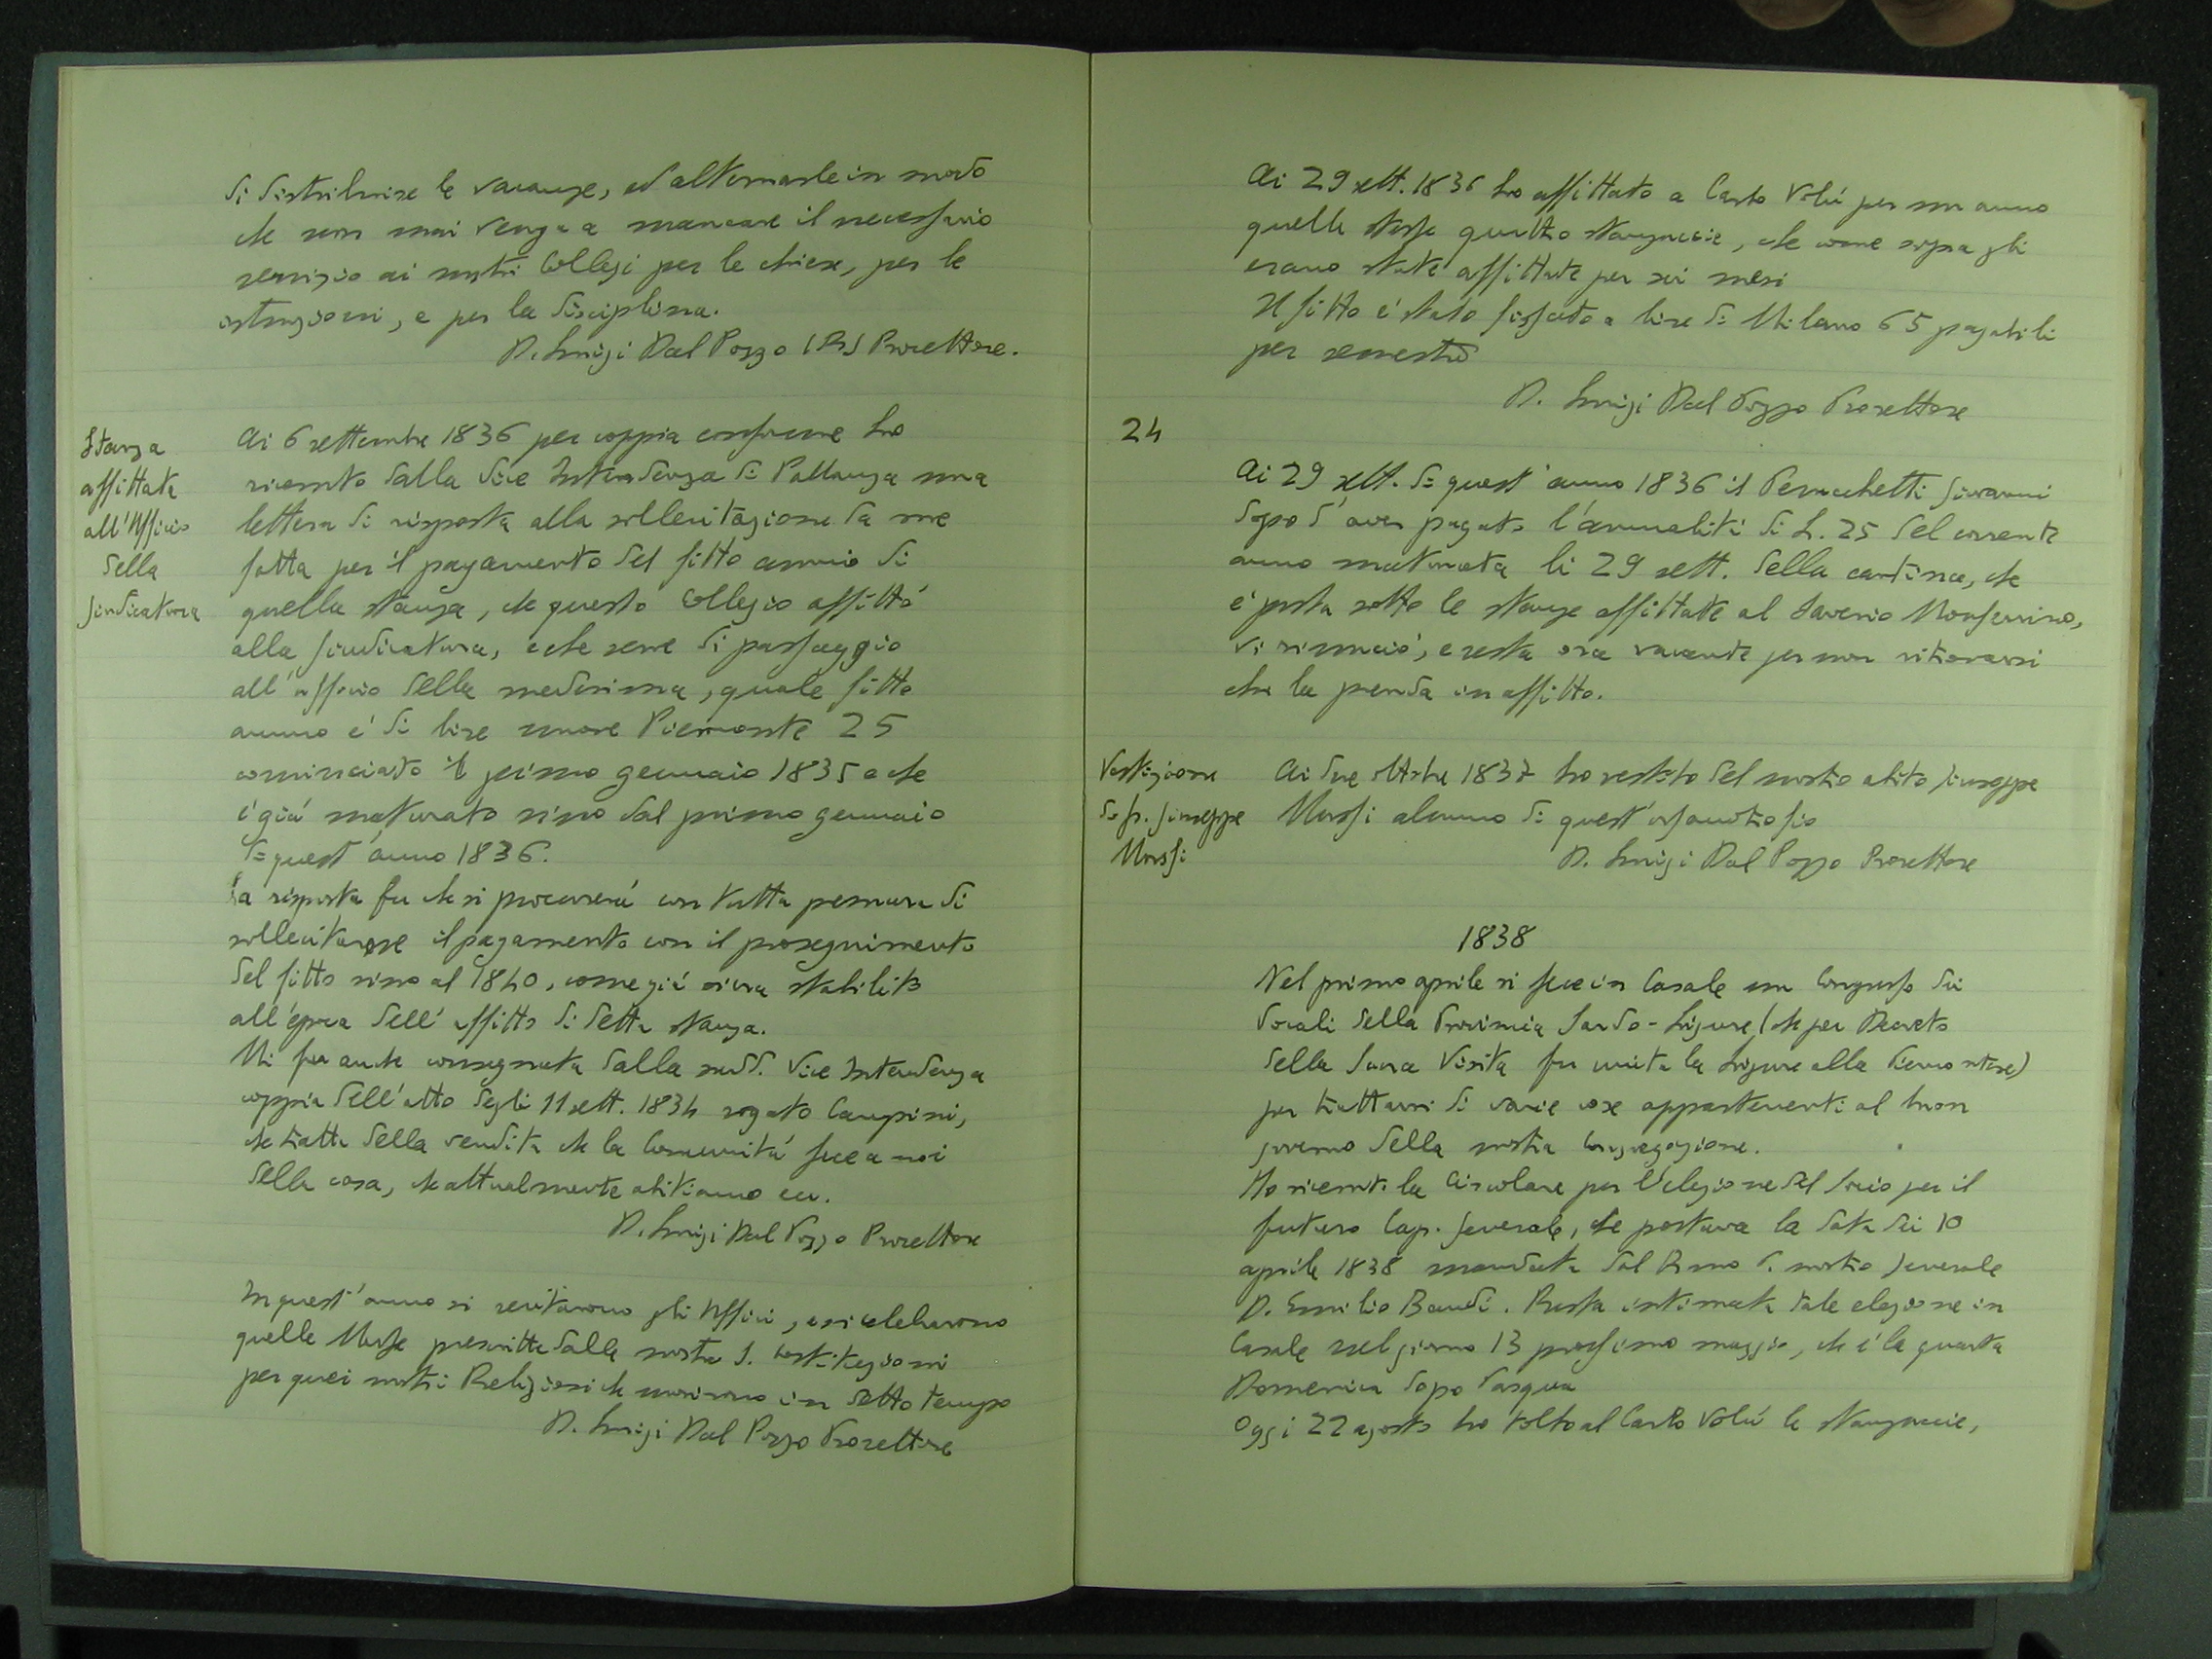 di distribuire le vacanze, ed alternarle in modo
che non mai venga a mancare il necessario
servizio ai nostri Collegi per le chiese, per le
istruzioni, e per la disciplina.
D. Luigi Dal Pozzo CRS Prorettore.
Stanza
affittata
all'Ufficio
della
Giudicatura
Ai 6 settembre 1836 per coppia conforme ho
ricevuto dalla Vice Intendenza di Pallanza una
lettera di risposta alla sollecitazione da me
fatta per il pagamento del fitto annuo di
quella stanza, che questo Collegio affittò
alla Giudicatura, e che serve di passaggio
all'ufficio della medesima, quale fitto
annuo è di lire nuove Piemonte 25
cominciato il primo gennaio 1835 e che
è già maturato sino dal primo gennaio
di quest'anno 1836.
La risposta fu che si procurerà con tutta premura di
sollecitarne il pagamento con il proseguimento
del fitto sino al 1840, come già si era stabilito
all'epoca dell'affitto di detta stanza.
Mi fu anche consegnata dalla sudd. Vice Intendenza
coppia dell'atto degli 11 sett. 1834 rogato Campini,
che tratta della vendita che la Comunità fece a noi
della casa, che attualmente abitiamo ecc.
D. Luigi Dal Pozzo Prorettore
In quest'anno si recitarono gli Uffici, e si celebrarono
quelle Messe prescritte dalle nostre S. Costituzioni
per quei nostri Religiosi che morirono in detto tempo
D. Luigi Dal Pozzo Prorettore
Ai 29 sett. 1836 ho affittato a Carlo Volù per un anno
quelle stesse quattro stanzuccie, che come sopra gli
erano state affittate per sei mesi
Il fitto è stato fissato a lire di Milano 65 pagabili
per semestre
D. Luigi Dal Pozzo Prorettore
24
Ai 29 sett. di quest'anno 1836 il Peracchetti Giovanni
dopo d'aver pagato l'annualità di L. 25 del corrente
anno maturata li 29 sett. della cantina, che
è posta sotto le stanze affittate al Saverio Monferrino,
vi rinunciò, e resta ora vacante per non ritrovarsi
chi la prenda in affitto.
Vestizione
di fr. Giuseppe
Mossi
Ai due ottobre 1837 ho vestito del nostro abito Giuseppe
Mossi alunno di quest'orfanotrofio
D. Luigi Dal Pozzo Prorettore
1838
Nel primo aprile si fece in Casale un Congresso dei
Vocali della Provincia Sardo-Ligure (che per Decreto
della Sacra Visita fu unita la Ligure alla Piemontese)
per trattarsi di varie cose appartenenti al buon
governo della nostra Congregazione.
Ho ricevuto la Circolare per l'elezione del Socio per il
futuro Cap. Generale, che portava la data dei 10
aprile 1838 mandata dal R.mo P. nostro Generale
D. Emilio Baudi. Resta intimata tale elezione in
Casale nel giorno 13 prossimo maggio, che è la quarta
Domenica dopo Pasqua
Oggi 22 agosto ho tolto al Carlo Volù le stanzuccie,